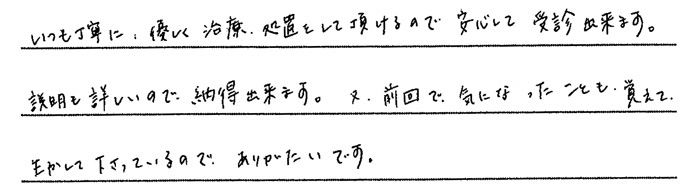 いつも丁寧に、優しく治療、処置をして頂けるので安心して受診出来ます。
説明も詳しいので納得出来ます。又、前回で気になったことも、覚えて、
生かして下さっているので、ありがたいです。